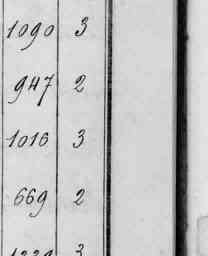 1090 3
947 2
1016 3
669 2
3